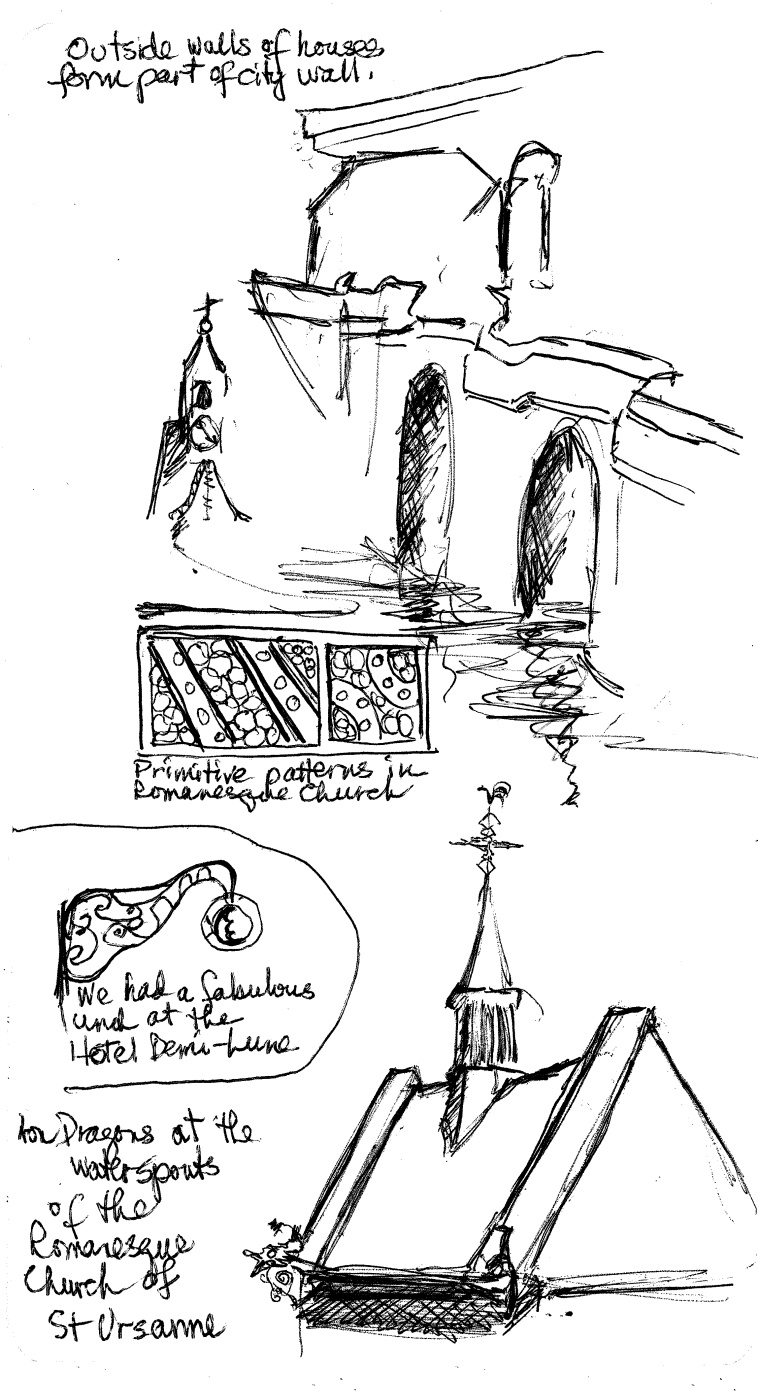 Outside walls of houses
form part of city wall.
Primitive patterns in
Romanesque Church
We had a fabulous
at the
Hotel Demi-Lune
Dragons at the
waterspouts
of the
Romanesque
Church of
St Ursanne